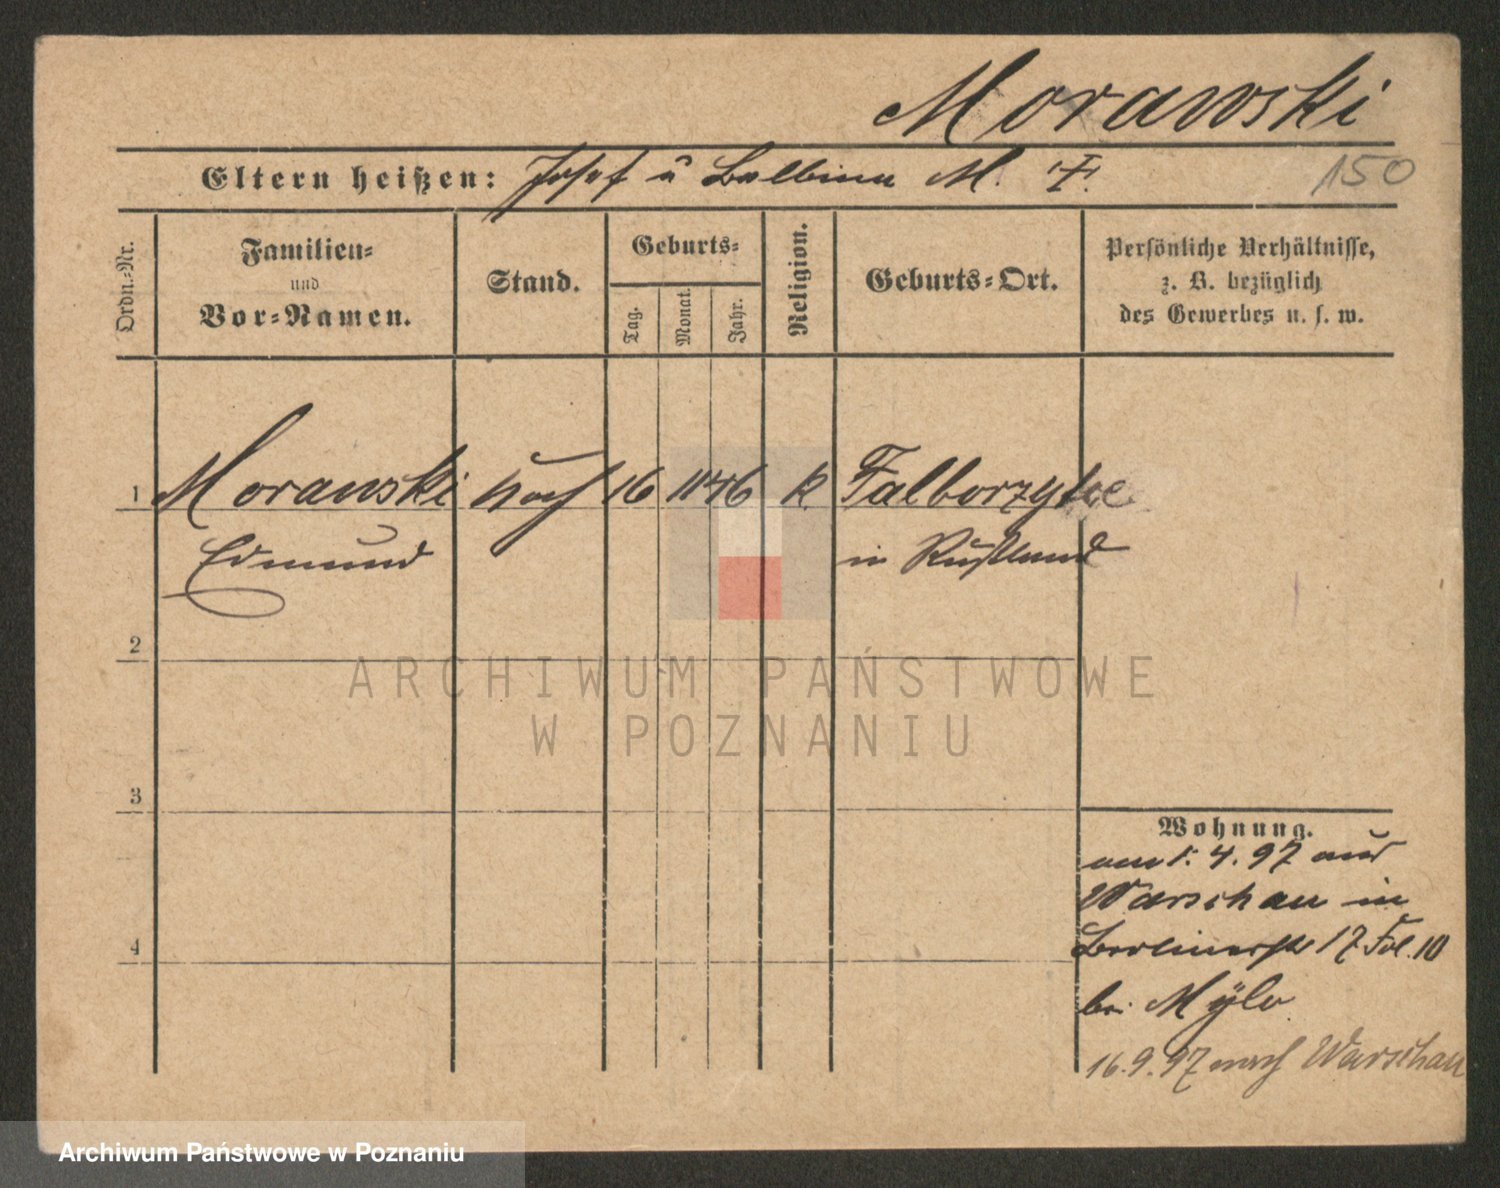 Morawski
Eltern heißen: Josef u Balbina M. T.
150
Ordn.-Nr.
Familien-
und
Vor-Namen.
Stand.
Geburts-
Tag.
Monat.
Jahr.
Religion.
Geburts-Ort.
Persönliche Verhältnisse,
z. B. bezüglich
des Gewerbes u. s. w.
1 Morawski Koch 16 11 46 k.
Edmund in Rußland
2
3
4
Wohnung.
am 1. 4. 97 aus
Warschau in
Berlinerstr 17 Fol. 10
bei Mÿlo
16. 9. 97 nach Warschau
ARCHIWUM PAŃSTWOWE
W POZNANIU
Archiwum Państwowe w Poznaniu